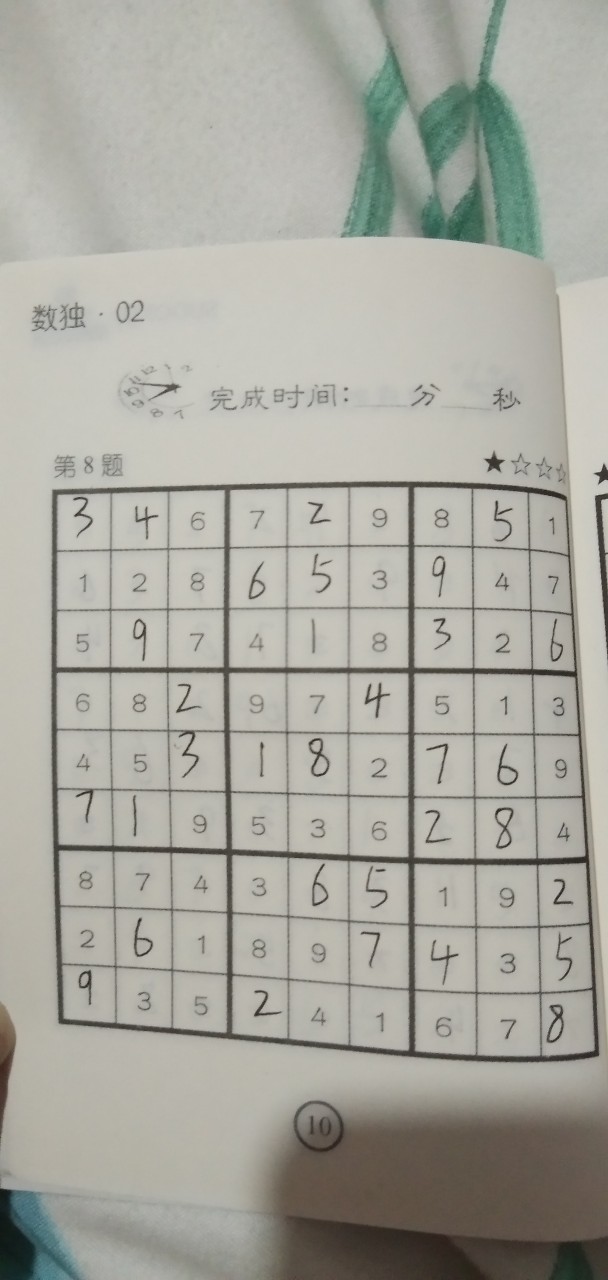 数独·02
12 1 2
完成时间: 分 秒
第8题 ★☆☆☆
3 4 6 7 2 9 8 5 1
1 2 8 6 5 3 9 4 7
5 9 7 4 1 8 3 2 6
6 8 2 9 7 4 5 1 3
4 5 3 1 8 2 7 6 9
7 1 9 5 3 6 2 8 4
8 7 4 3 6 5 1 9 2
2 6 1 8 9 7 4 3 5
9 3 5 2 4 1 6 7 8
10